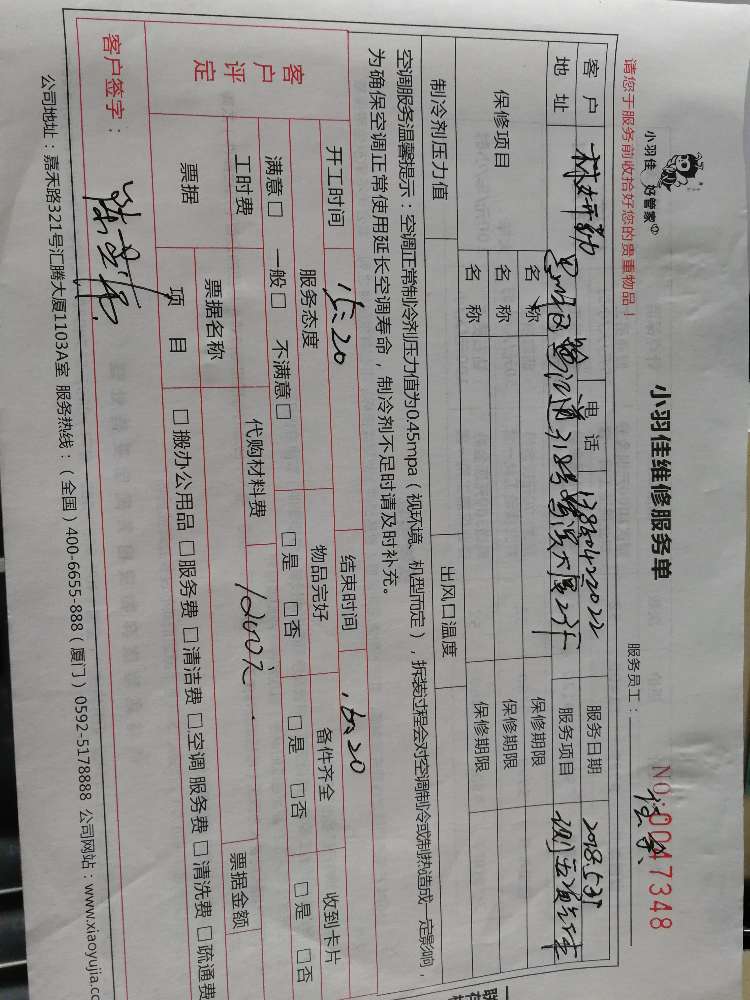 小羽佳 好管家
小羽佳维修服务单
NO:0047348
请您于服务前收拾好您的贵重物品！
服务员工：
客户 电话 13850422022 服务日期 2018.5.31
地址 服务项目
保修项目 名称 保修期限
名称 保修期限
名称 保修期限
制冷剂压力值 出风口温度
空调服务温馨提示：空调正常制冷剂压力值为0.45mpa（视环境、机型而定），拆装过程会对空调制冷或制热造成一定影响，
为确保空调正常使用延长空调寿命，制冷剂不足时请及时补充。
开工时间 15:20 结束时间 16:20
客户评定 服务态度 物品完好 备件齐全 收到卡片
满意□ 一般□ 不满意□ □是 □否 □是 □否 □是 □否
工时费 代购材料费 1200元
票据 票据名称 票据金额
项目 □搬办公用品 □服务费 □清洁费 □空调服务费 □清洗费 □疏通费
客户签字：
公司地址：嘉禾路321号汇腾大厦1103A室 服务热线：（全国）400-6655-888（厦门）0592-5178888 公司网站：www.xiaoyujia.cc